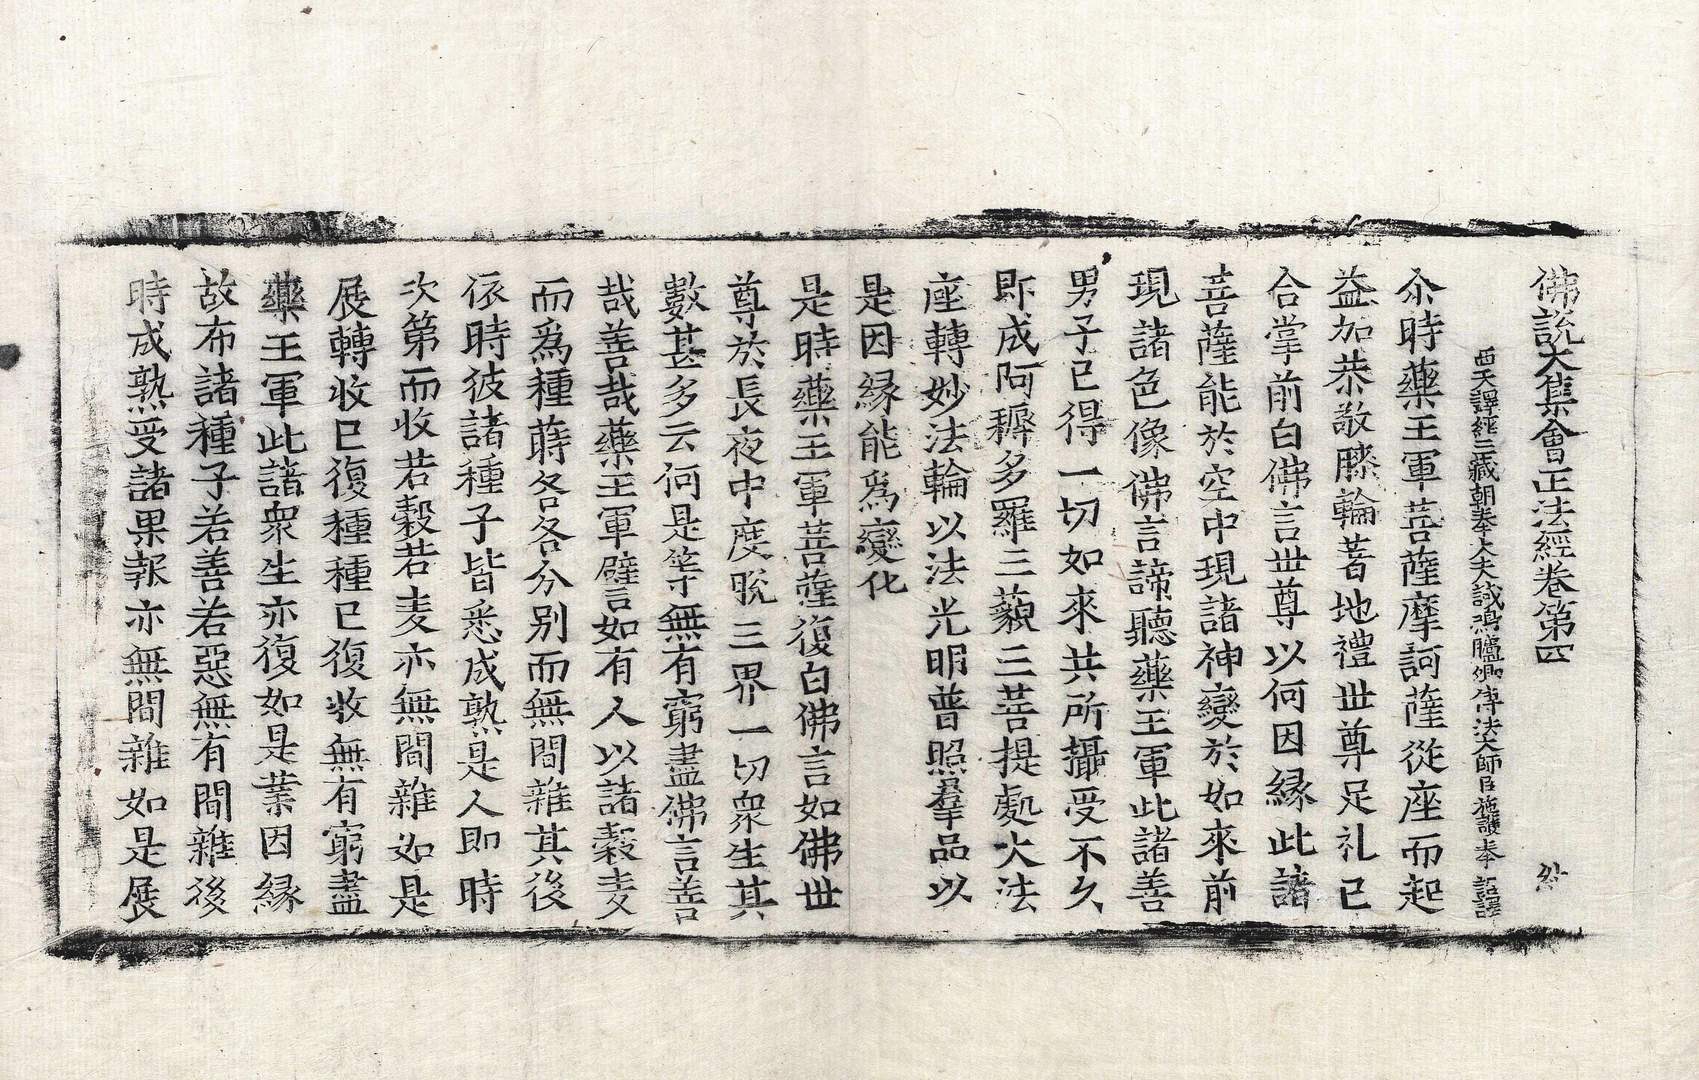 佛說大集會正法經卷第四 紿
西天譯經三藏朝奉大夫試鴻臚卿傳法大師臣施護奉 詔譯
尒時藥王軍菩薩摩訶薩從座而起
益加恭敬膝輪著地禮世尊足礼已
合掌前白佛言世尊以何因緣此諸
菩薩能於空中現諸神變於如來前
現諸色像佛言諦聽藥王軍此諸善
男子已得一切如來共所攝受不久
即成阿耨多羅三藐三菩提處大法
座轉妙法輪以法光明普照羣品以
是因緣能爲變化
是時藥王軍菩薩復白佛言如佛世
尊於長夜中度脫三界一切衆生其
數甚多云何是等無有窮盡佛言善
哉善哉藥王軍譬如有人以諸穀麦
而爲種蒔各各分別而無間雜其後
依時彼諸種子皆悉成熟是人即時
次第而收若穀若麦亦無間雜如是
展轉收已復種種已復收無有窮盡
藥王軍此諸衆生亦復如是業因緣
故布諸種子若善若惡無有間雜後
時成熟受諸果報亦無間雜如是展